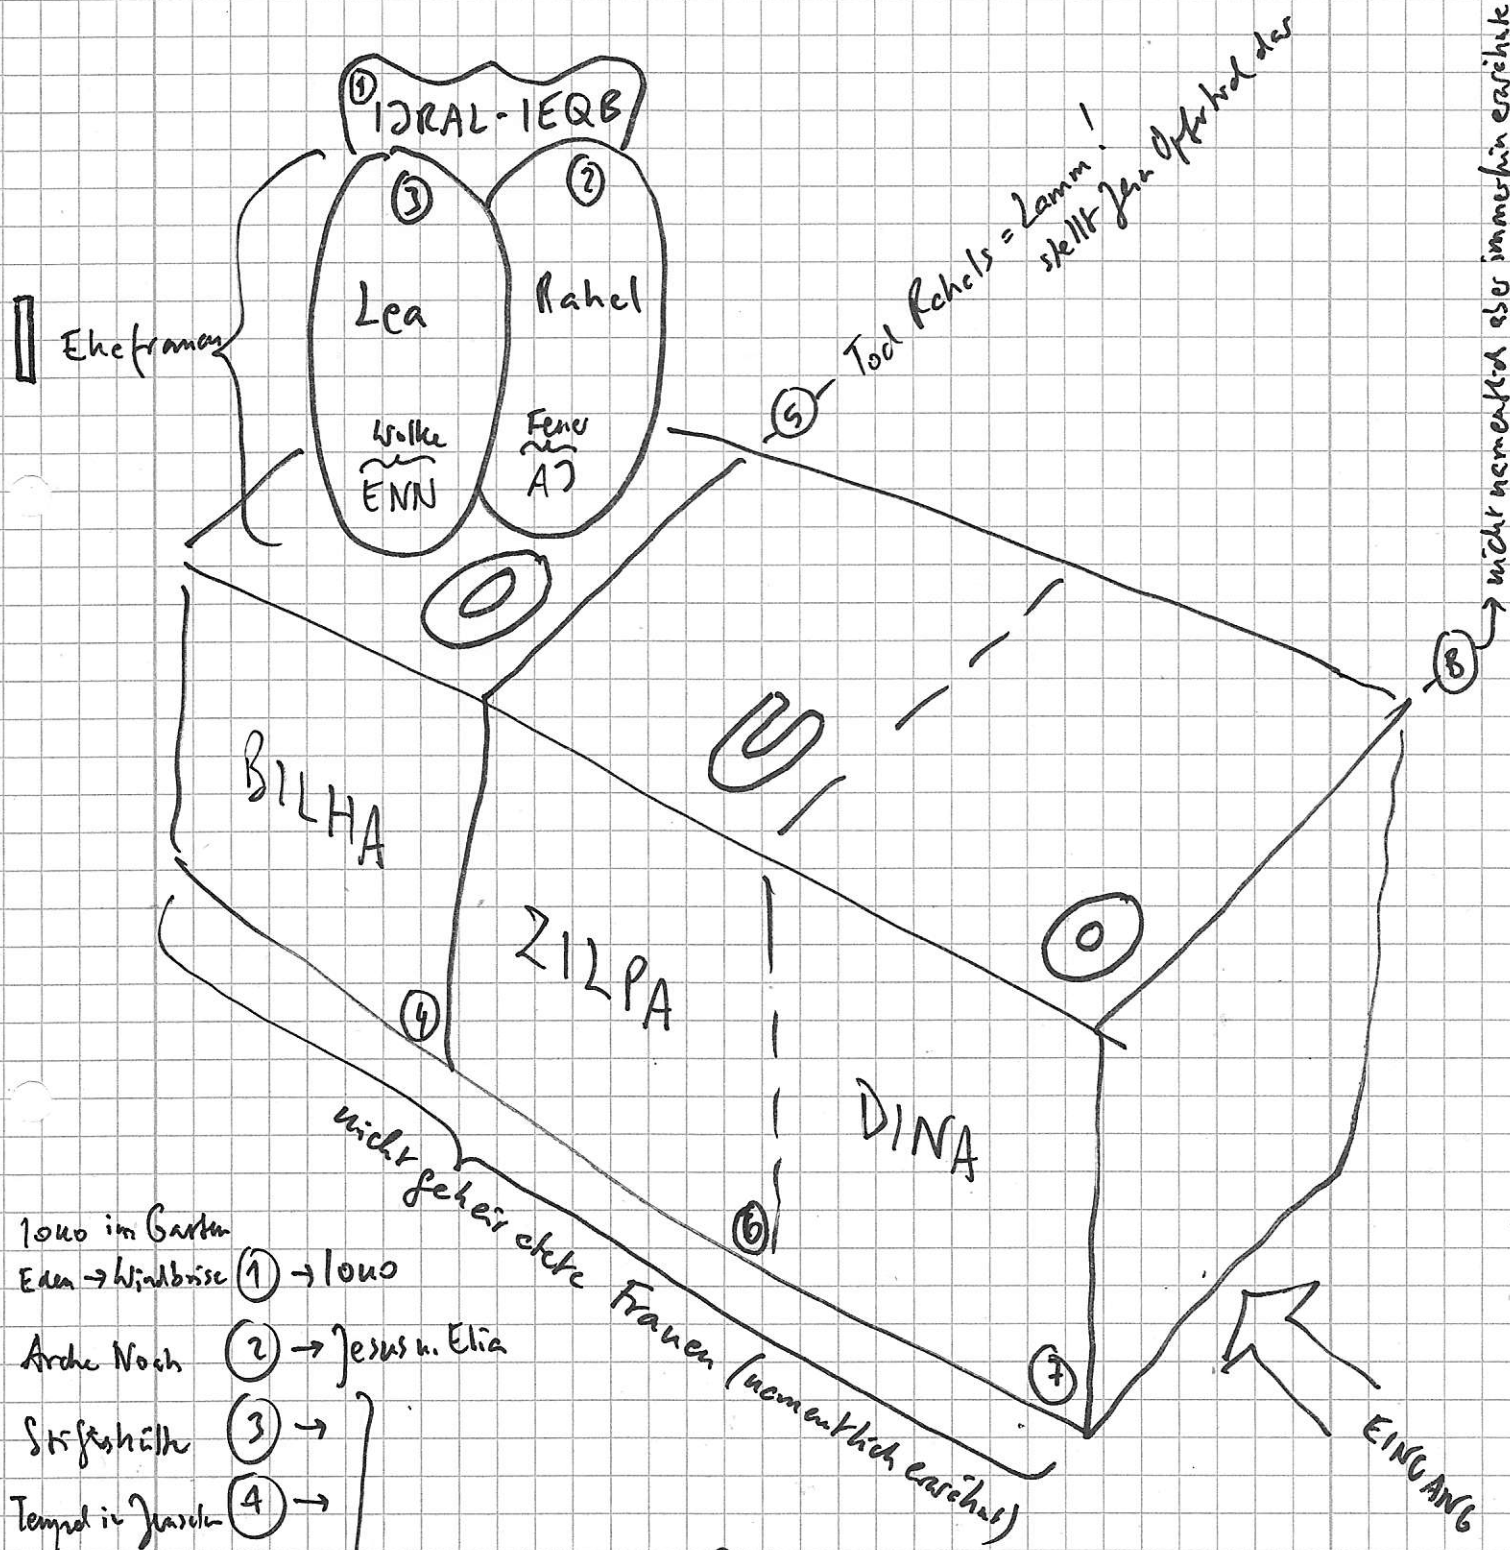 ① IJRAL-IEQB
③
②
Lea
Rahel
Ehefrauen
Wolke
ENN
Feuer
AJ
⑤ Tod Rahels = Lamm!
stellt Jesu Opfertod dar
⑧ → nicht namentlich aber immerhin erwähnte
BILHA
④
ZILPA
⑥
DINA
⑦
nicht geheiratete Frauen (namentlich erwähnt)
EINGANG
IOUO im Garten
Eden → Windbrise ① → IOUO
Arche Noah ② → Jesus u. Elia
Stiftshütte ③ →
Tempel in ④ →